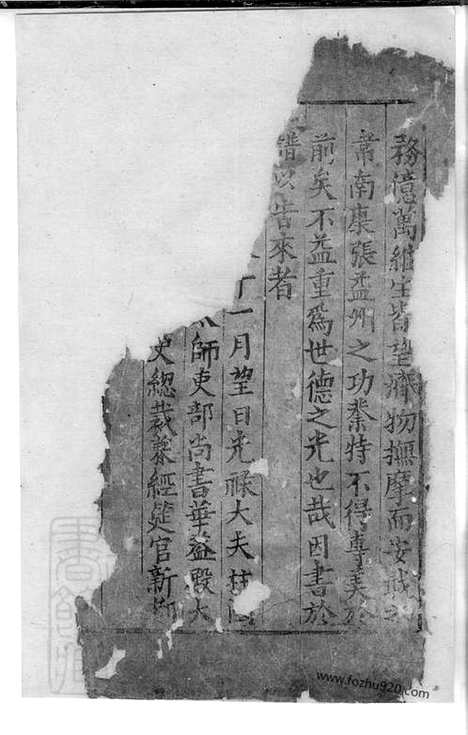 務億萬維生皆望濟物撫摩而安戢
韋南康張益州之功業特不得專美於
前矣不益重為世德之光也哉因書於
譜以告來者
十一月望日光祿大夫柱國
師吏部尚書華蓋殿大
史總裁兼經筵官新都
www.fozhu920.com